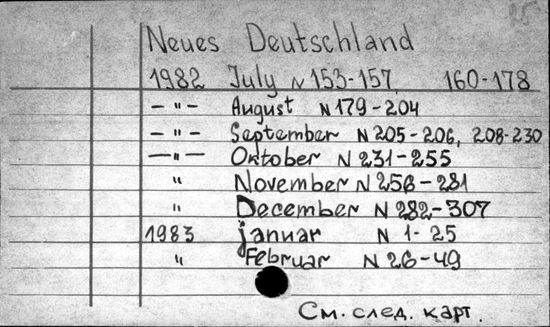 Neues Deutschland
1982 July N 153-157, 160-178
— " — August N 179-204
— " — September N 205-206, 208-230
— " — Oktober N 231-255
" November N 256-281
" December N 282-307
1983 januar N 1-25
" Februar N 26-49
См. след. карт.